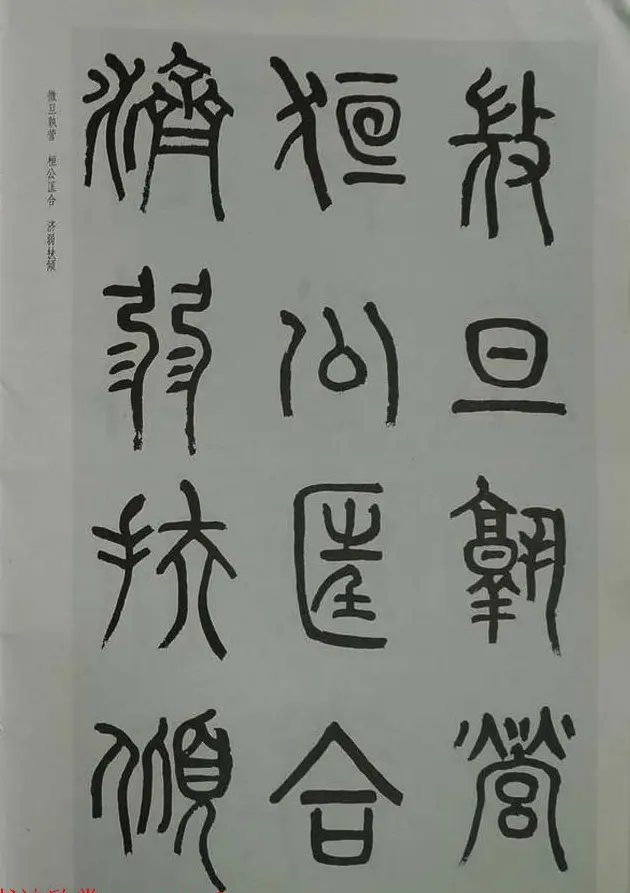 微旦孰營
桓公匡合
濟弱扶傾
微旦孰营 桓公匡合 济弱扶倾